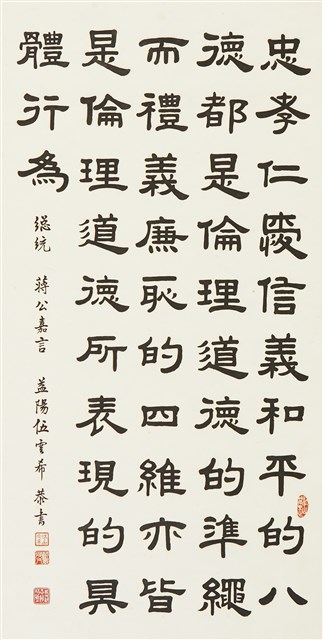 忠孝仁愛信義和平的八
德都是倫理道德的準繩
而禮義廉恥的四維亦皆
是倫理道德所表現的具
體行為
總統 蔣公嘉言 益陽伍雲希恭書